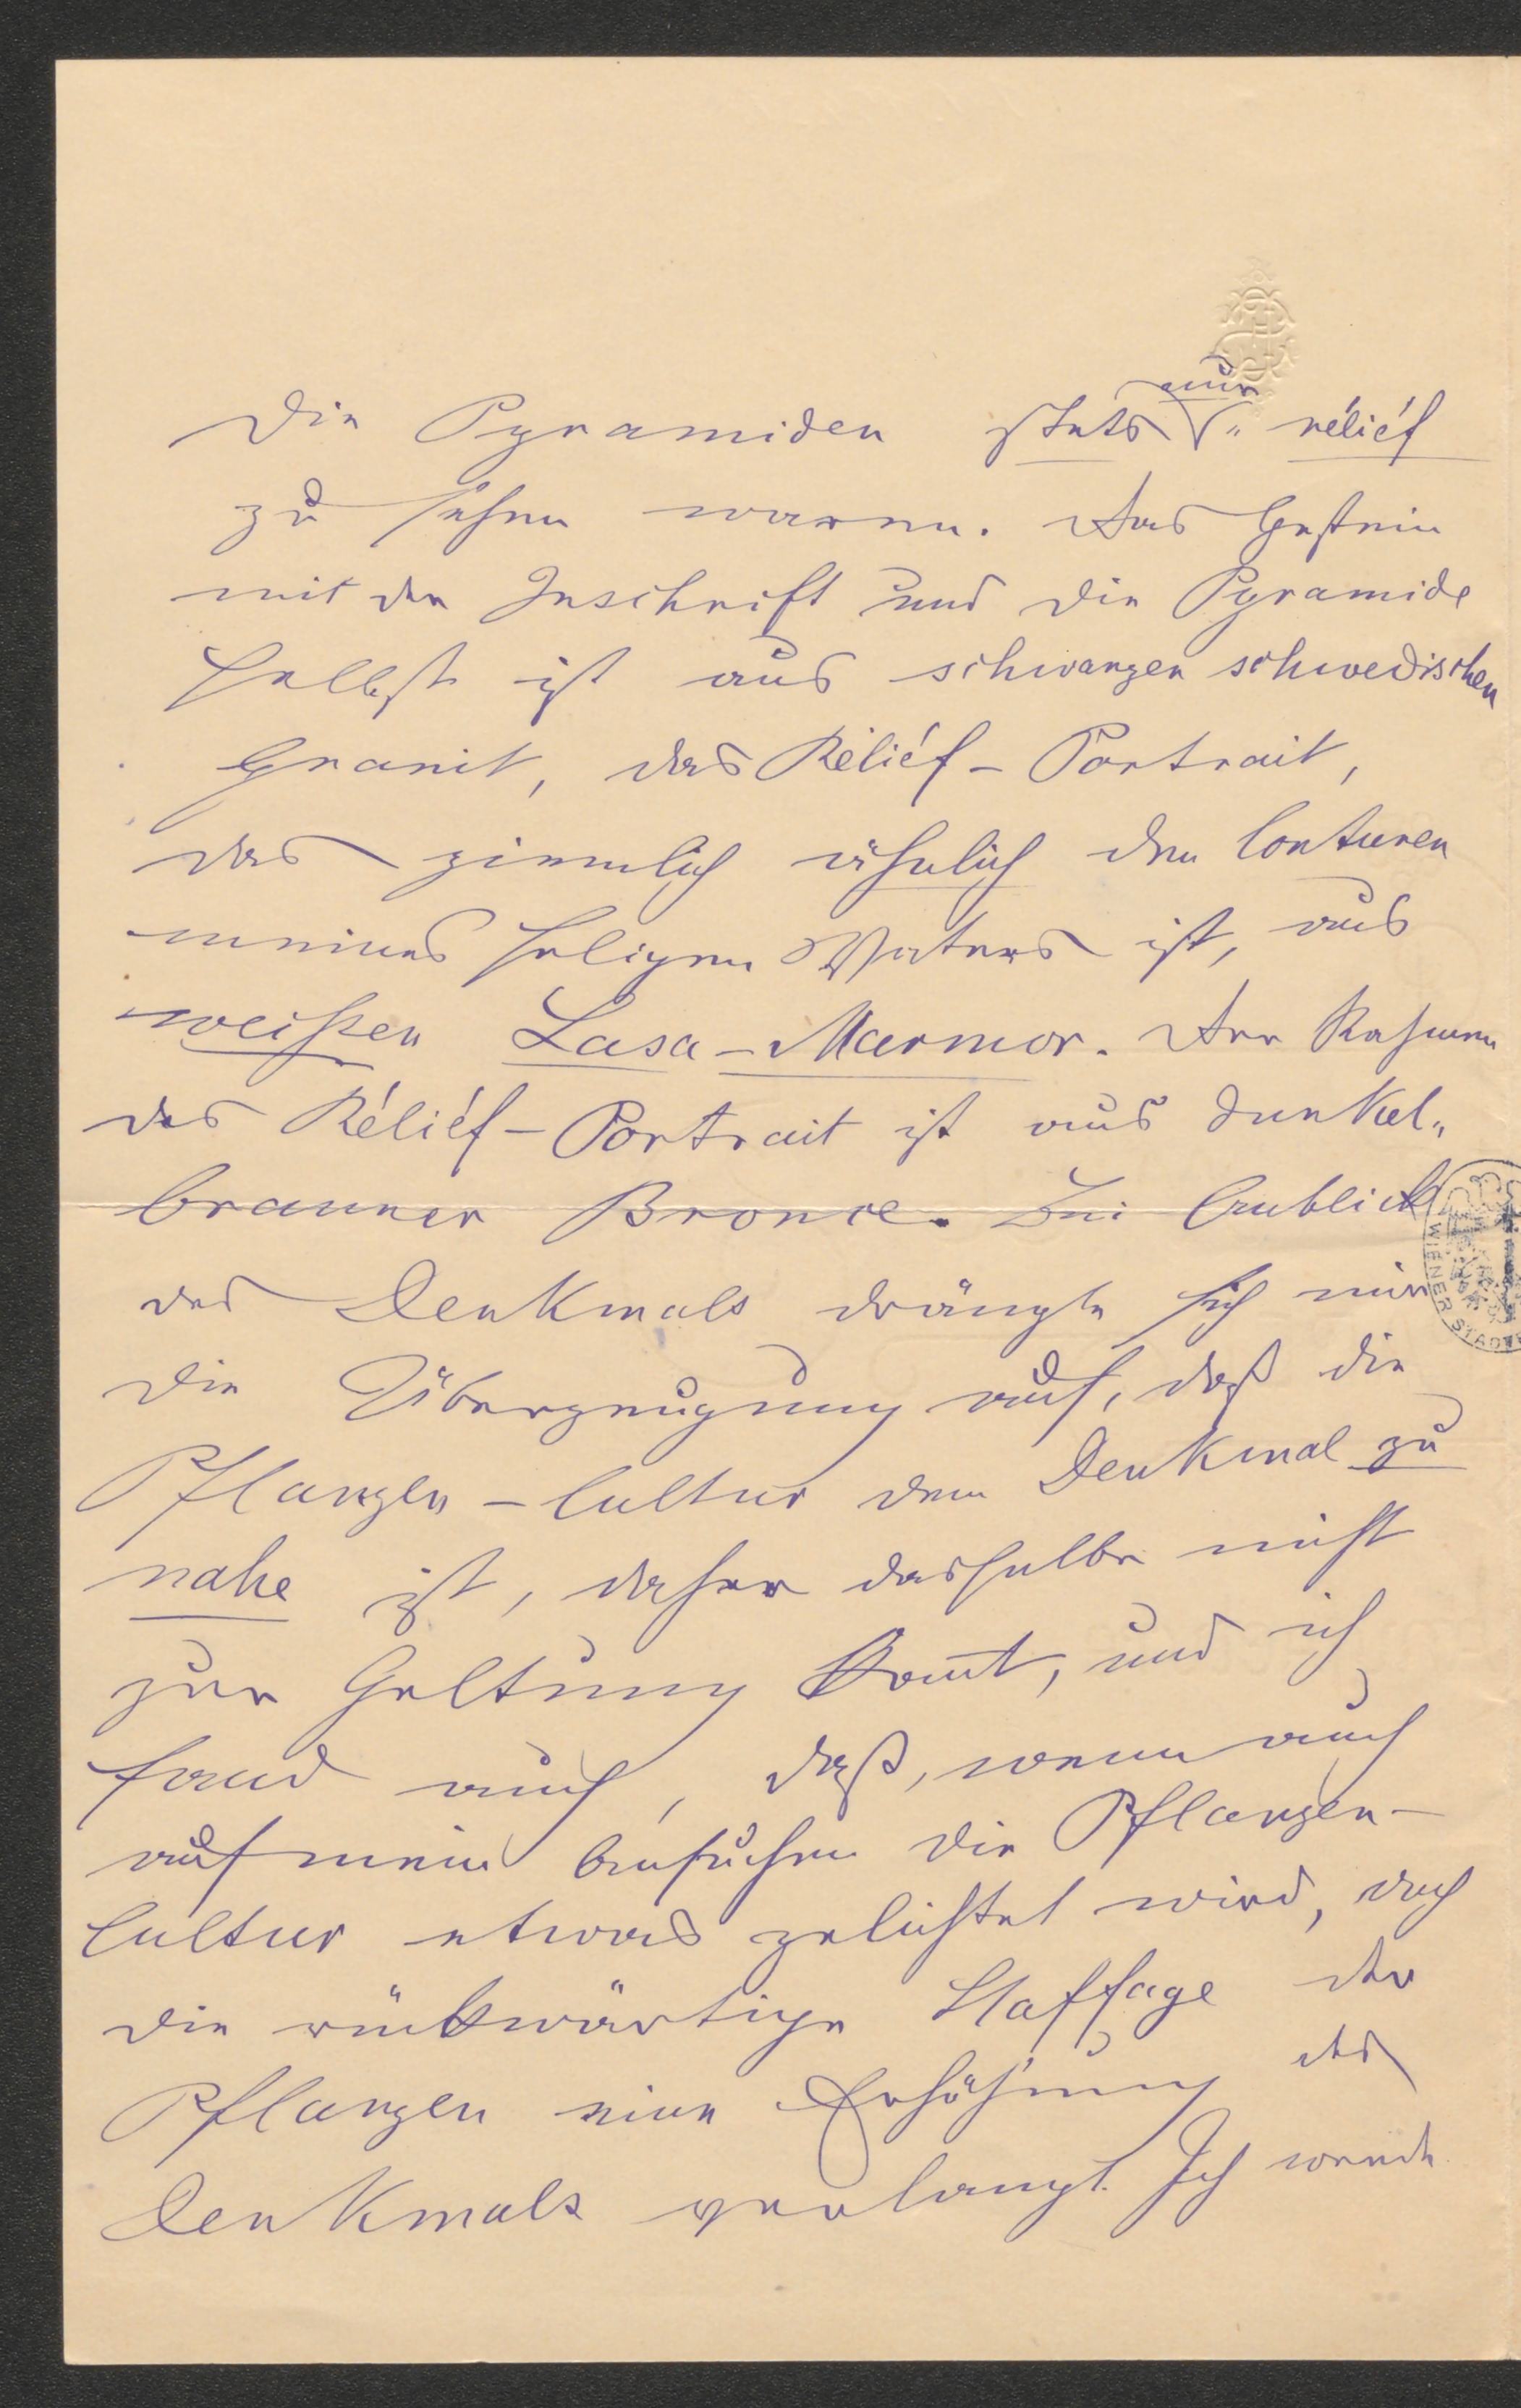 die Pyramiden stets nur " réliéf
zu sehen waren. Das Gestein
mit der Inschrift und die Pyramide
selbst ist aus schwarzen schwedischen
Granit, das Réliéf-Portrait,
das ziemlich ähnlich den Conturen
meines seligen Vaters ist, aus
weißen Lasa-Marmor. Der Rahmen
des Réliéf-Portrait ist aus dunkel„
brauner Bronce. Im Anblick
des Denkmals drängte sich mir
die Überzeugung auf, daß die
Pflanzen-Cultur dem Denkmal zu
nahe ist, daher dasselbe nicht
zur Geltung komt, und ich
fand auch, daß, wenn auch
auf mein Ansuchen die Pflanzen-
Cultur etwas gelichtet wird, doch
die rückwärtige Staffage der
Pflanzen eine Erhöhung des
Denkmals verlangt. Ich werde
WIENER STADT